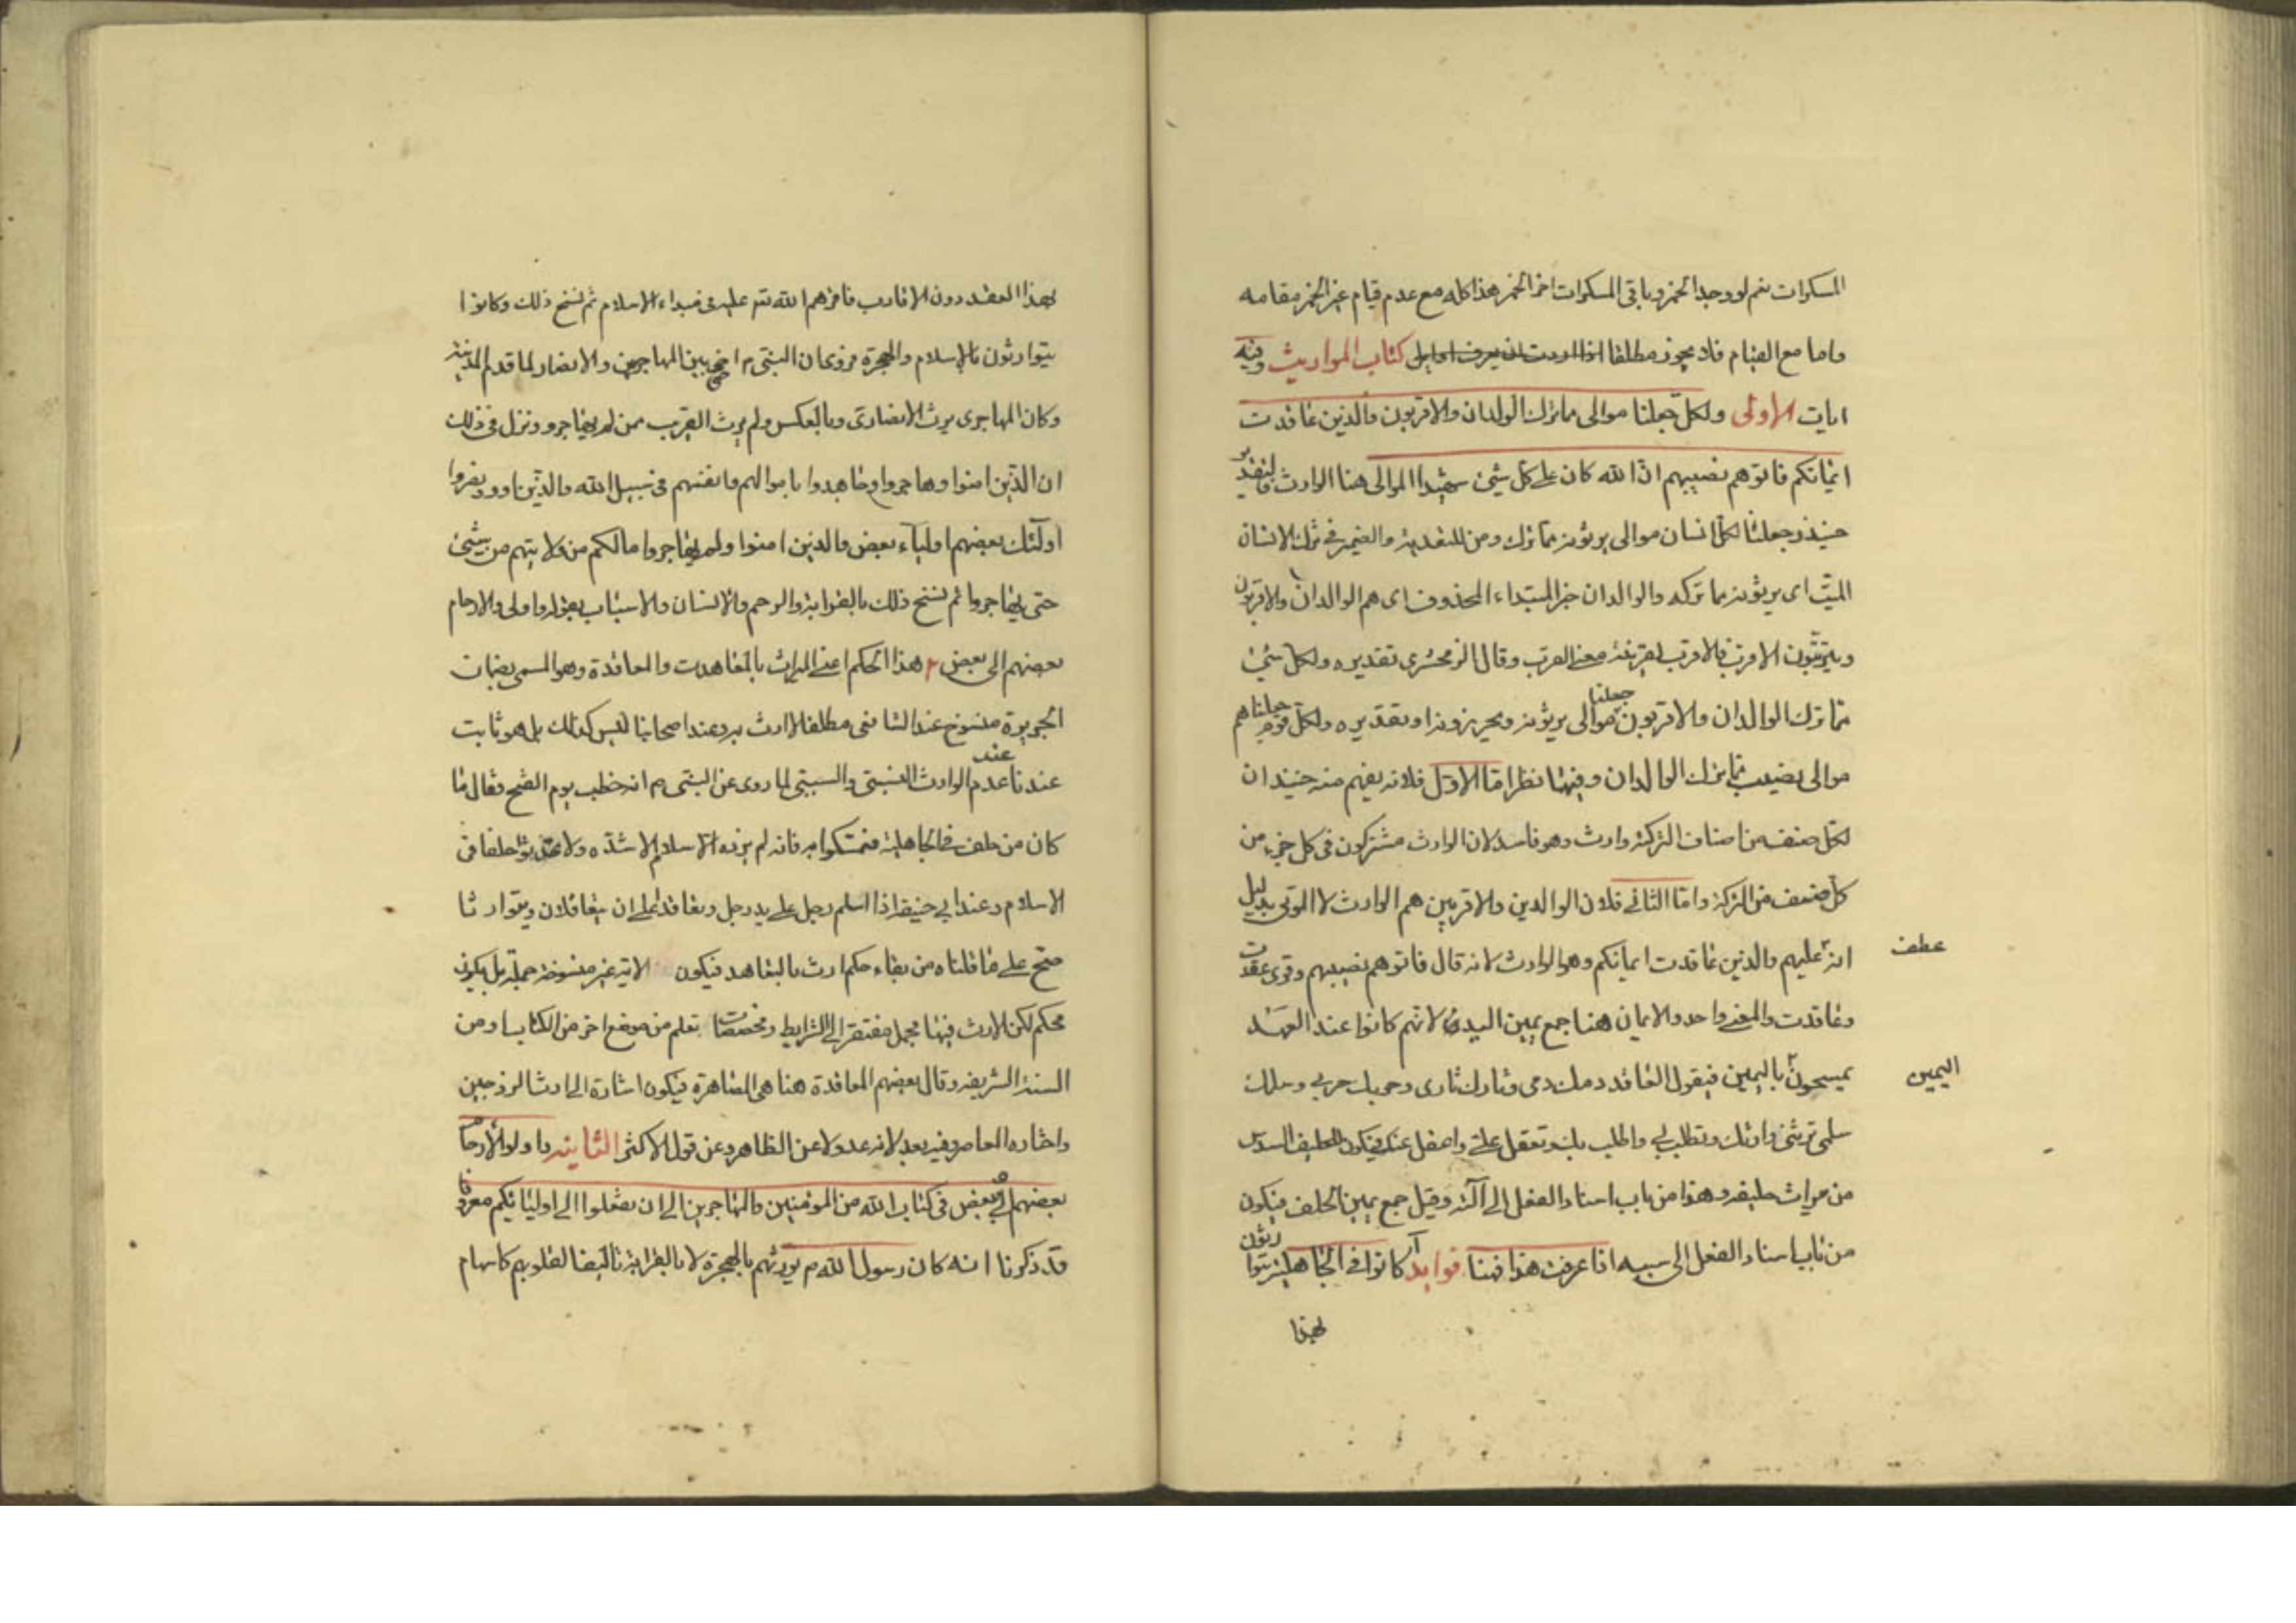 المسكرات نعم لو وجد الخمر وباقى المسكرات اخر الخمر هذا كله مع عدم قيام غير الخمر مقامه
واما مع القيام فلا يجوز مطلقا كتاب المواريث وفيه
ايات الاولى ولكل جعلنا موالى مما ترك الولدان والاقربون والذين عاقدت
ايمانكم فاتوهم نصيبهم ان الله كان على كل شئ شهيدا الموالى هنا الوارث والتقدير
حينئذ وجعلنا لكل انسان موالى يرثونه مما ترك ومن للتعدية والضمير فى ترك الانسان
الميت اى يرثونه مما تركه والوالدان خبر المبتداء المحذوف اى هم الوالدان والاقربون
ويترتبون الاقرب فالاقرب لقرينة معنى القرب وقال الزمخشرى تقديره ولكل شئ
مما ترك الوالدان والاقربون جعلنا موالى يرثونه ويحرزونه او تقديره ولكل قوم جعلناهم
موالى نصيب مما ترك الوالدان وفيهما نظر اما الاول فلانه يفهم منه حينئذ ان
لكل صنف من اصناف التركة وارث وهو فاسد لان الوارث مشتركون فى كل جزء من
كل صنف من التركة واما الثانى فلان الوالدين والاقربين هم الوارث لا الموتى بدليل
عطف
انه عليهم والذين عاقدت ايمانكم وهو الوارث لانه قال فاتوهم نصيبهم وقرى عقدت
وعاقدت والمعنى واحد والايمان هنا جمع يمين اليد لانهم كانوا عند العهد
يمسحون باليمين فيقول العاقد دمك دمى وثارك ثارى وحربك حربى وسلمك
اليمين
سلمى ترثنى وارثك وتطلب بى واطلب بك وتعقل عنى واعقل عنك فيكون للحليف السدس
من ميراث حليفه وهذا من باب اسناد الفعل الى آلته وقيل جمع يمين الحلف فيكون
من باب اسناد الفعل الى سببه اذا عرفت هذا فهنا فوايد آ كانوا فى الجاهلية يتوارثون
لهذا
لهذا العقد دون الاقارب فاقرهم الله تعم عليه فى مبداء الاسلام ثم نسخ ذلك وكانوا
يتوارثون بالاسلام والهجرة فروى ان النبى م اخى بين المهاجرين والانصار لما قدم المدينة
وكان المهاجرى يرث الانصارى وبالعكس ولم يرث القريب ممن لم يهاجر ونزل فى ذلك
ان الذين امنوا وهاجروا وجاهدوا باموالهم وانفسهم فى سبيل الله والذين اووا ونصروا
اولئك بعضهم اولياء بعض والذين امنوا ولم يهاجروا مالكم من ولايتهم من شئ
حتى يهاجروا ثم نسخ ذلك بالقرابة والرحم والانساب والاسباب بقوله واولى الارحام
بعضهم الى بعض ٢ هذا الحكم اعنى الميراث بالمعاهدت والمعاقدة وهو المسمى بضمان
الجريرة منسوخ عند الشافعى مطلقا لا ارث به وعند اصحابنا ليس كذلك بل هو ثابت
عندنا عند عدم الوارث النسبى والسببى لما روى عن النبى م انه خطب يوم الفتح فقال ما
كان من حلف فى الجاهلية فتمسكوا به فانه لم يزده الاسلام الا شدة ولا تحدثوا حلفا فى
الاسلام وعند ابى حنيفة اذا اسلم رجل على يد رجل وتعاقدا على ان يتعاقلان ويتوارثا
صح على ما قلناه من بقاء حكم ارث بالتعاهد فيكون الاية غير منسوخة جملة بل يكون
محكم لكن الارث فيها مجمل مفتقر الى الشرايط ومخصصات تعلم من موضع اخر من الكتاب او من
السنة الشريفة وقال بعضهم المعاقدة هنا هى المصاهرة فيكون اشارة الى ارث الزوجين
واختاره المعاصر وفيه بعد لانه عدولا عن الظاهر وعن قول الاكثر الثانية واولوا الارحام
بعضهم اولى ببعض فى كتاب الله من المومنين والمهاجرين الا ان تفعلوا الى اوليائكم معروفا
قد ذكرنا انه كان رسول الله م يورثهم بالهجرة لا بالقرابة تاليفا لقلوبهم كاسهام